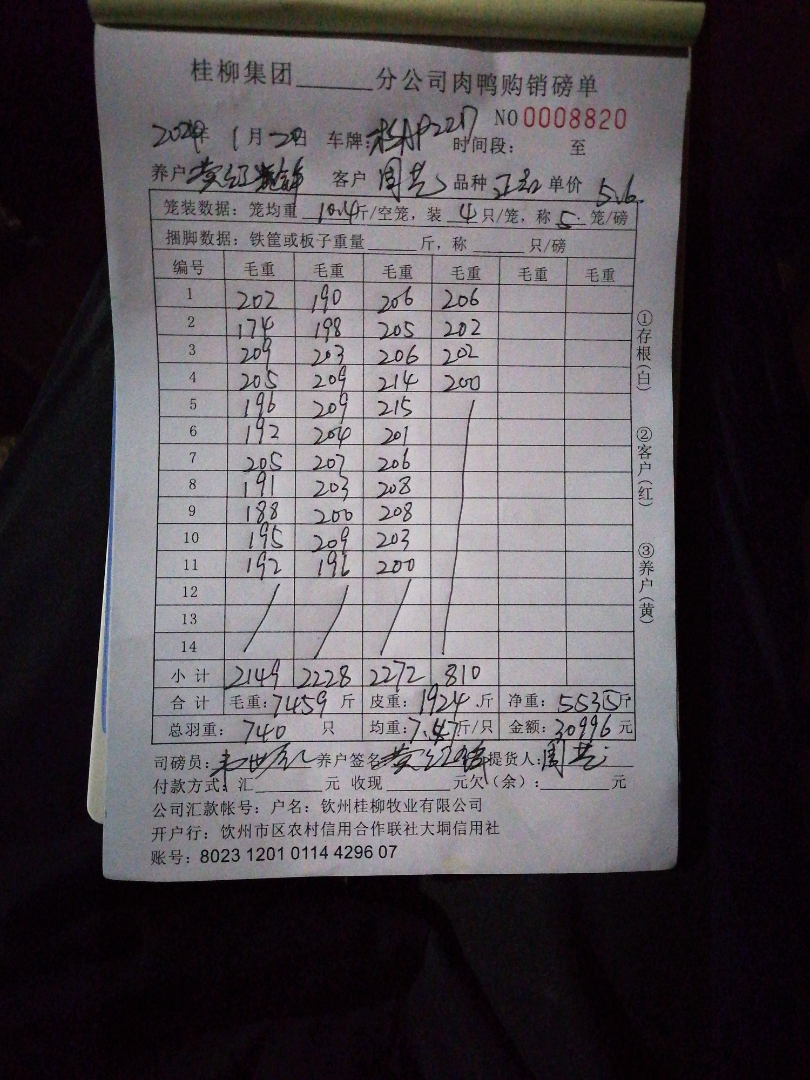 桂柳集团______分公司肉鸭购销磅单
NO 0008820
2024年 1月20日 车牌: 时间段: 至
养户 黄红 客户 周艺 品种 正 单价 5.6
笼装数据：笼均重 10.4斤/空笼，装 4 只/笼，称 5 笼/磅
捆脚数据：铁筐或板子重量______斤，称______只/磅
编号 毛重 毛重 毛重 毛重 毛重 毛重
1 202 190 206 206
2 174 198 205 202
3 209 203 206 202
4 205 209 214 200
5 196 209 215
6 192 204 201
7 205 207 206
8 191 203 208
9 188 200 208
10 195 209 203
11 192 196 200
12
13
14
小计 2149 2228 2272 810
合计 毛重：7459 斤 皮重：1924 斤 净重：5535斤
总羽重：740 只 均重：7.47斤/只 金额：30996 元
司磅员： 养户签名 黄红 提货人：周艺
付款方式：汇______元 收现______元欠（余）：______元
公司汇款帐号：户名：钦州桂柳牧业有限公司
开户行：钦州市区农村信用合作联社大垌信用社
账号：8023 1201 0114 4296 07
①存根（白）
②客户（红）
③养户（黄）